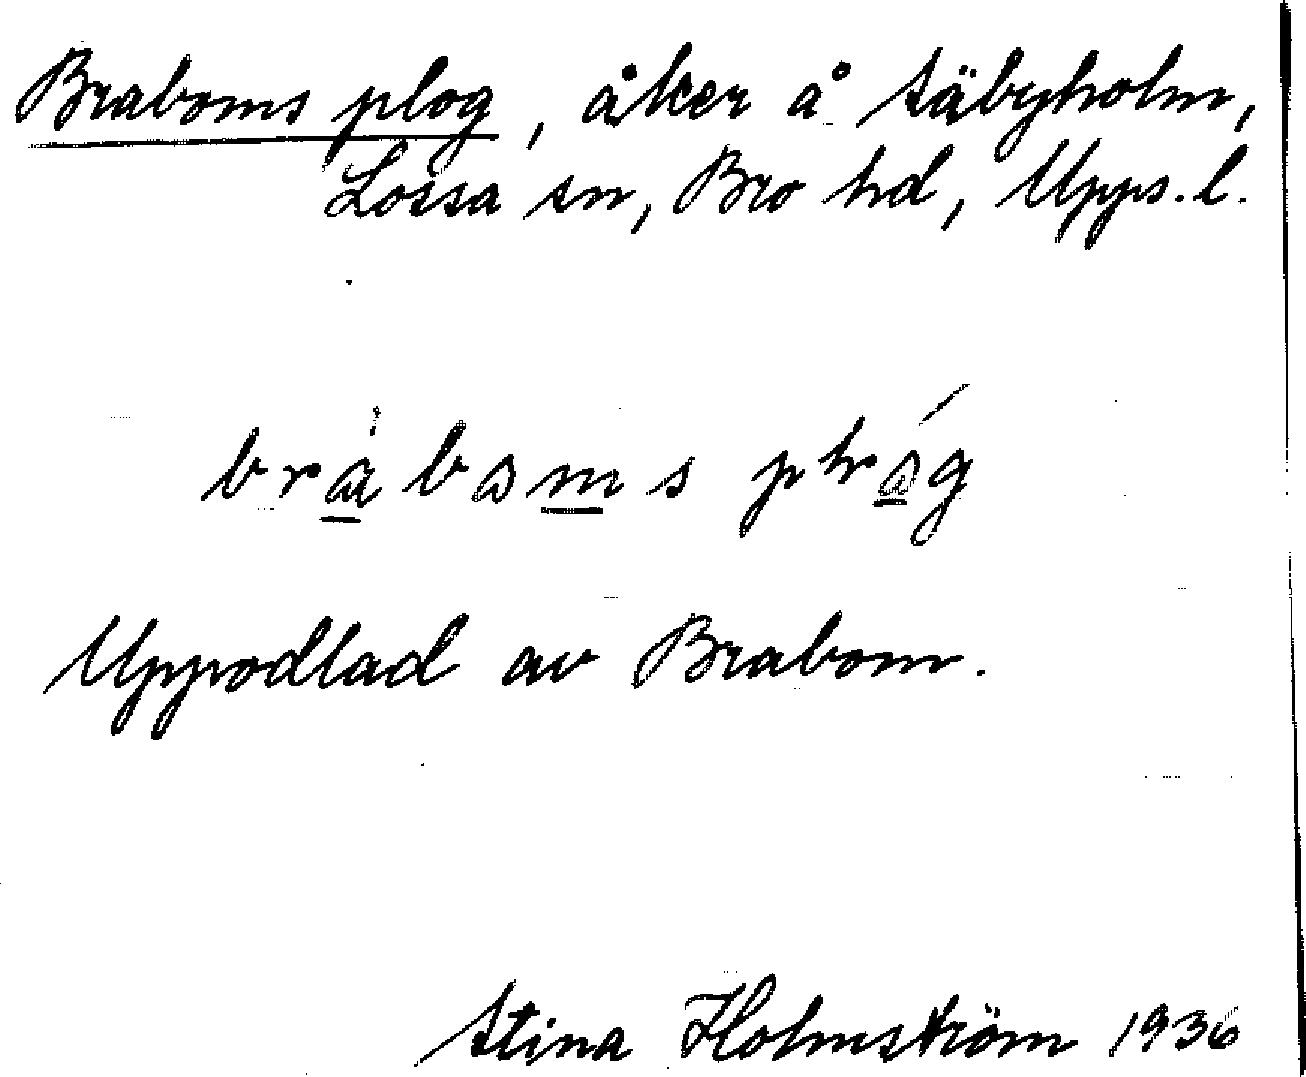 Braboms plog, åker å Säbyholm,
Låssa sn, Bro hd, Upps. l.
Uppodlad av Brabom.
Stina Holmström 1936